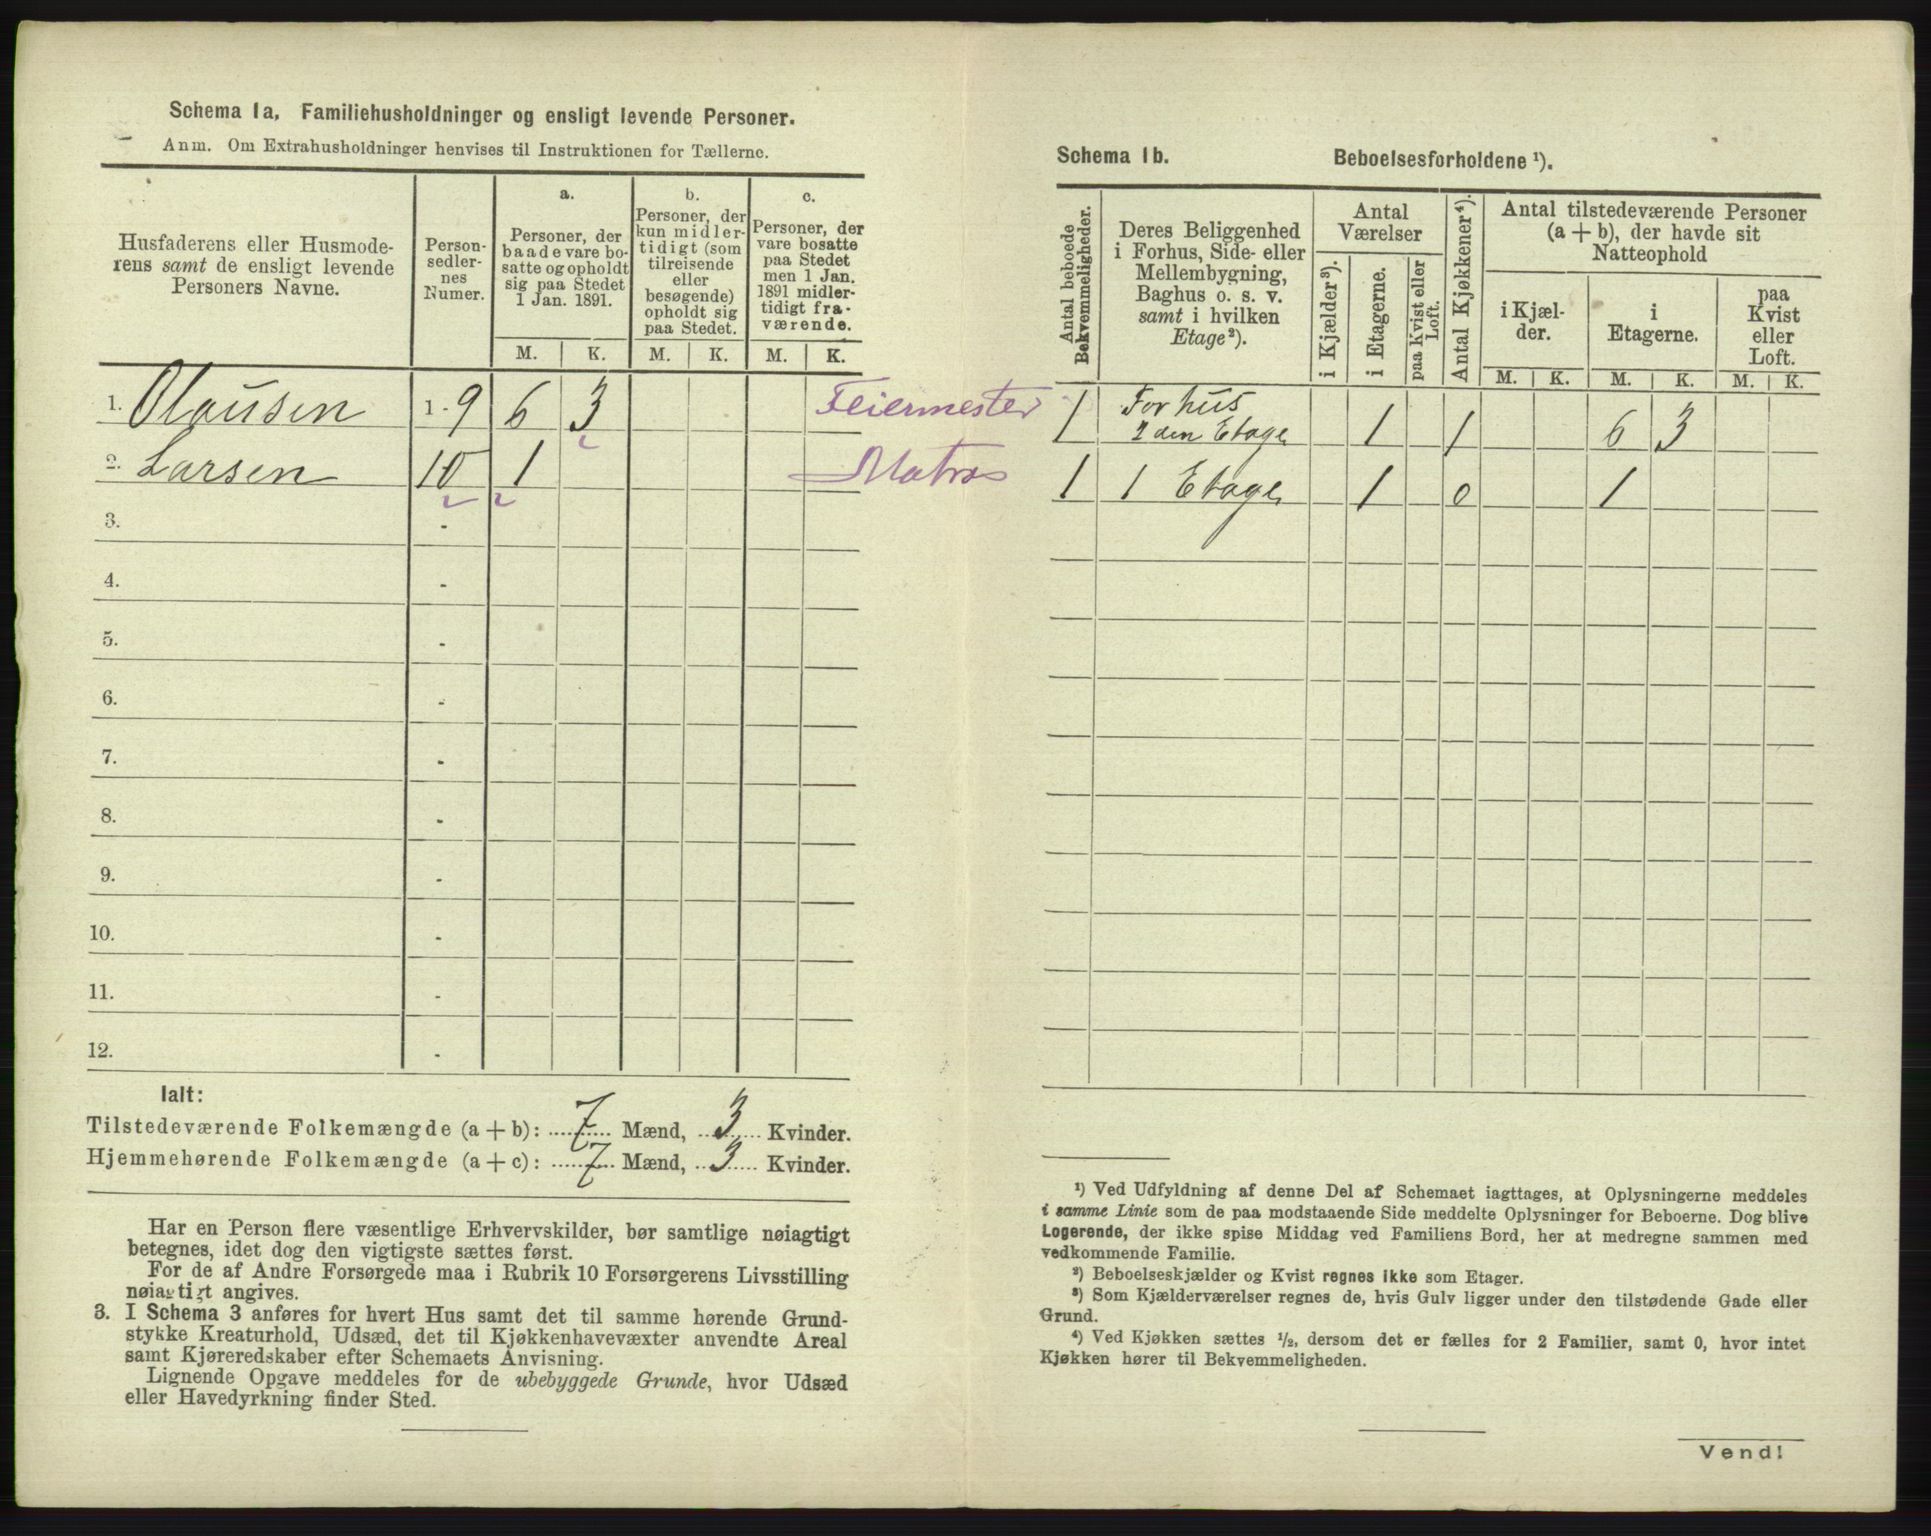 Schema 1a. Familiehusholdninger og ensligt levende Personer.
Anm. Om Extrahusholdninger henvises til Instruktionen for Tællerne.
Husfaderens eller Husmode-
rens samt de ensligt levende
Personers Navne.
Person-
sedler-
nes
Numer.
a.
Personer, der
baade vare bo-
satte og opholdt
sig paa Stedet
1 Jan. 1891.
b.
Personer, der
kun midler-
tidigt (som
tilreisende
eller
besøgende)
opholdt sig
paa Stedet.
c.
Personer, der
vare bosatte
paa Stedet
men 1 Jan.
1891 midler-
tidigt fra-
værende.
M. K. M. K. M. K.
1. Olausen 1-9 6 3 Feiermester
2. Larsen 10 1 Matros
3. -
4. -
5. -
6. -
7. -
8. -
9. -
10. -
11. -
12. -
Ialt:
Tilstedeværende Folkemængde (a + b): 7 Mænd, 3 Kvinder.
Hjemmehørende Folkemængde (a + c): 7 Mænd, 3 Kvinder.
Har en Person flere væsentlige Erhvervskilder, bør samtlige nøiagtigt
betegnes, idet dog den vigtigste sættes først.
For de af Andre Forsørgede maa i Rubrik 10 Forsørgerens Livsstilling
nøiagtigt angives.
3. I Schema 3 anføres for hvert Hus samt det til samme hørende Grund-
stykke Kreaturhold, Udsæd, det til Kjøkkenhavevæxter anvendte Areal
samt Kjøreredskaber efter Schemaets Anvisning.
Lignende Opgave meddeles for de ubebyggede Grunde, hvor Udsæd
eller Havedyrkning finder Sted.
Schema 1b. Beboelsesforholdene ¹).
Antal beboede
Bekvemmeligheder.
Deres Beliggenhed
i Forhus, Side- eller
Mellembygning,
Baghus o. s. v.
samt i hvilken
Etage²).
Antal
Værelser
i Kjælder³).
i Etagerne.
paa Kvist eller
Loft.
Antal Kjøkkener⁴).
Antal tilstedeværende Personer
(a + b), der havde sit
Natteophold
i Kjæl-
der.
i
Etagerne.
paa
Kvist
eller
Loft.
M. K. M. K. M. K.
1 Forhus
2den Etage 1 1 6 3
1 1 Etage 1 0 1
¹) Ved Udfyldning af denne Del af Schemaet iagttages, at Oplysningerne meddeles
i samme Linie som de paa modstaaende Side meddelte Oplysninger for Beboerne. Dog blive
Logerende, der ikke spise Middag ved Familiens Bord, her at medregne sammen med
vedkommende Familie.
²) Beboelseskjælder og Kvist regnes ikke som Etager.
³) Som Kjælderværelser regnes de, hvis Gulv ligger under den tilstødende Gade eller
Grund.
⁴) Ved Kjøkken sættes ½, dersom det er fælles for 2 Familier, samt 0, hvor intet
Kjøkken hører til Bekvemmeligheden.
Vend!